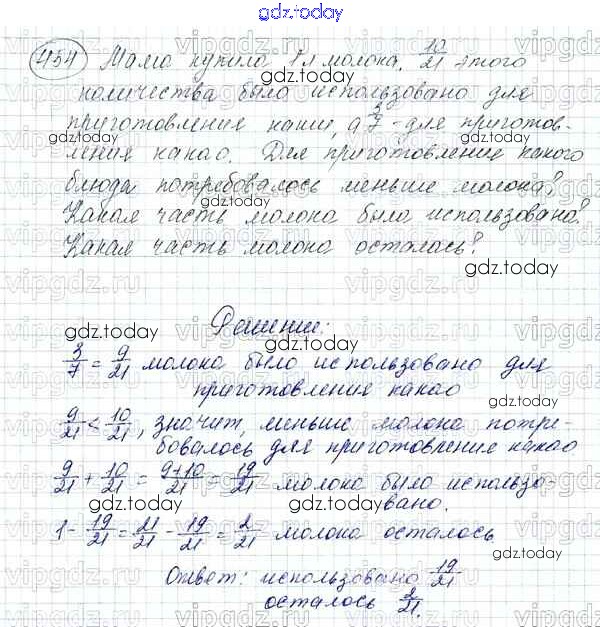 gdz.today
454 Мама купила 1 л молока. 10/21 этого
количества было использовано для
приготовления каши, а 3/7 - для приготов-
ления какао. Для приготовление какого
блюда потребовалось меньше молока?
Какая часть молока была использована?
Какая часть молока осталась?
Решение:
3/7 = 9/21 молока было использовано для
приготовления какао
9/21 < 10/21, значит, меньше молока потре-
бовалось для приготовления какао
9/21 + 10/21 = 9+10/21 = 19/21 молока было использо-
вано.
1 - 19/21 = 21/21 - 19/21 = 2/21 молока осталось
Ответ: использовано 19/21
осталось 2/21.